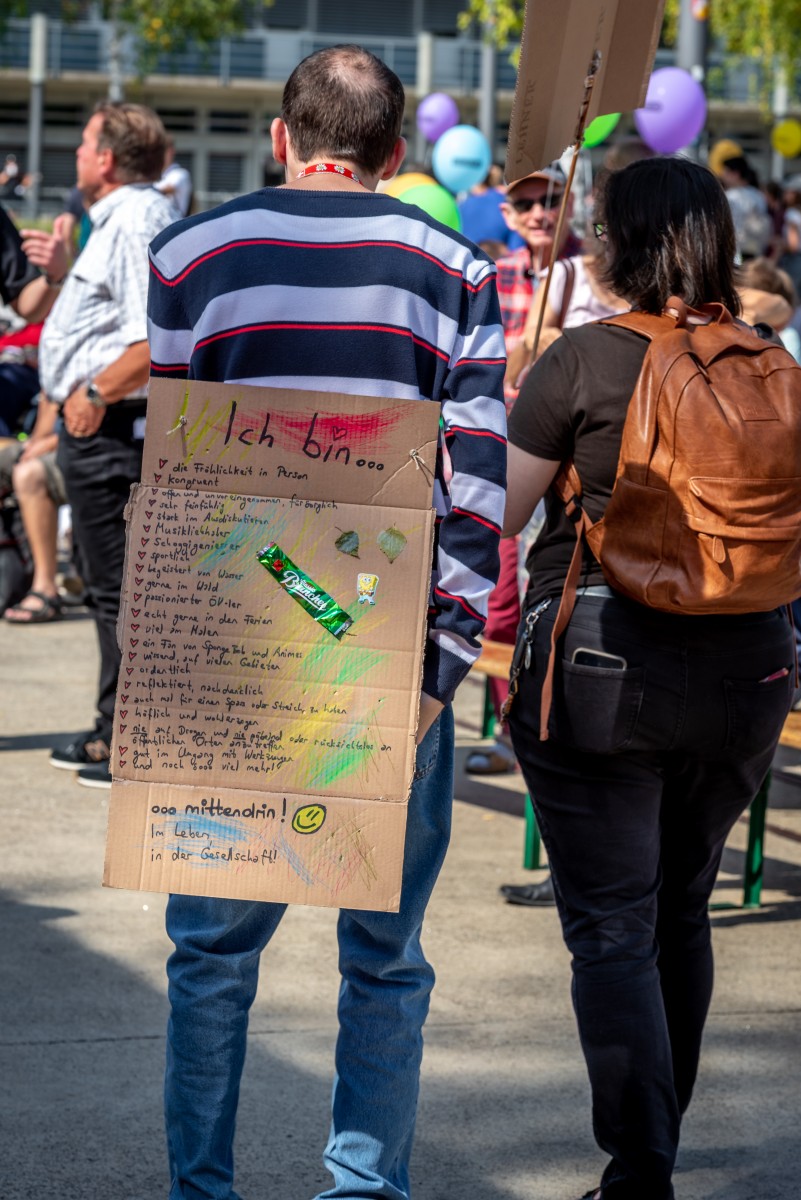 LEINER
Ich bin...
die Fröhlichkeit in Person
kongruent
offen und unvoreingenommen, fürsorglich
sehr feinfühlig
stark im Ausdiskutieren
Musikliebhaber
Schoggigeniesser
sportlich
begeistert von Wasser
gerne im Wald
passionierter ÖV-ler
echt gerne in den Ferien
viel am Malen
ein Fan von SpongeBob und Animes
wissend, auf vielen Gebieten
ordentlich
reflektiert, nachdenklich
auch mal für einen Spass oder Streich zu haben
höflich und wohlerzogen
nie auf Drogen und nie pöbelnd oder rücksichtslos an
öffentlichen Orten anzutreffen
gut im Umgang mit Werkzeugen
und noch sooo viel mehr!
Branches
ooo mittendrin!
Im Leben,
in der Gesellschaft!